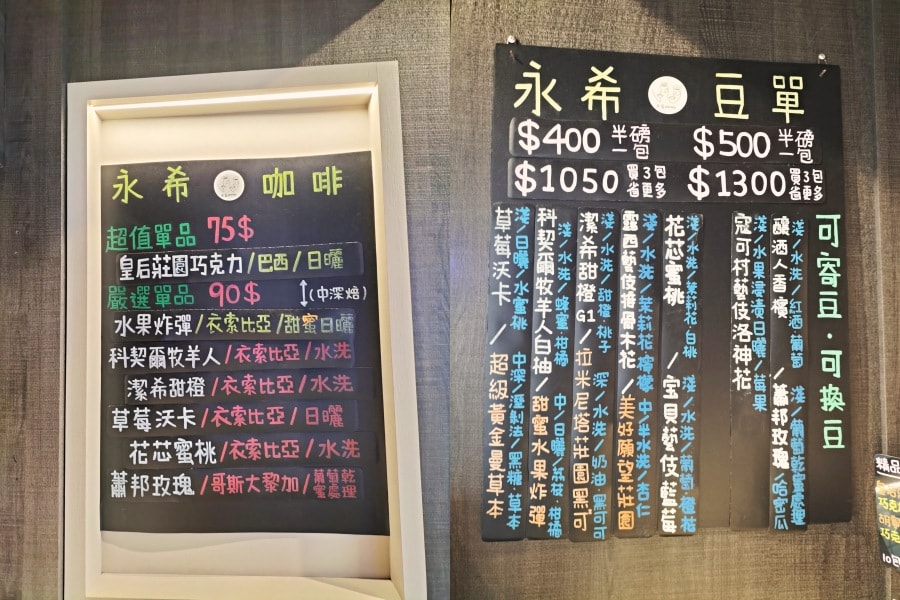 永希 咖啡
超值單品 75$
皇后莊園巧克力/巴西/日曬
嚴選單品 90$ ↕(中深焙)
水果炸彈/衣索比亞/甜蜜日曬
科契爾牧羊人/衣索比亞/水洗
潔希甜橙/衣索比亞/水洗
草莓沃卡/衣索比亞/日曬
花芯蜜桃/衣索比亞/水洗
蕭邦玫瑰/哥斯大黎加/葡萄乾蜜處理
永希 豆單
$400 半磅一包 $500 半磅一包
$1050 買3包省更多 $1300 買3包省更多
可寄豆·可換豆
釀酒人香檳/蕭邦玫瑰
淺/水洗/紅酒 葡萄 淺/葡萄乾蜜處理/哈密瓜
寇可村藝伎洛神花
淺/水果浸漬日曬/莓果
花芯蜜桃/寶貝藝伎藍莓
淺/水洗/茉莉花 白桃 淺/水洗/葡萄 柑桔
露西藝伎接骨木花/美好願望莊園
淺/水洗/茉莉花 檸檬 中/半水洗/杏仁
潔希甜橙G1/拉米尼塔莊園黑可可
淺/水洗/甜橙 桃子 深/水洗/奶油 黑可可
科契爾牧羊人白柚/甜蜜水果炸彈
淺/水洗/蜂蜜 柑橘 中/日曬/荔枝 柑橘
草莓沃卡/超級黃金曼草本
淺/日曬/水蜜桃 中深/溼剝法/黑糖 草本
精品
巧克
巧克
10包